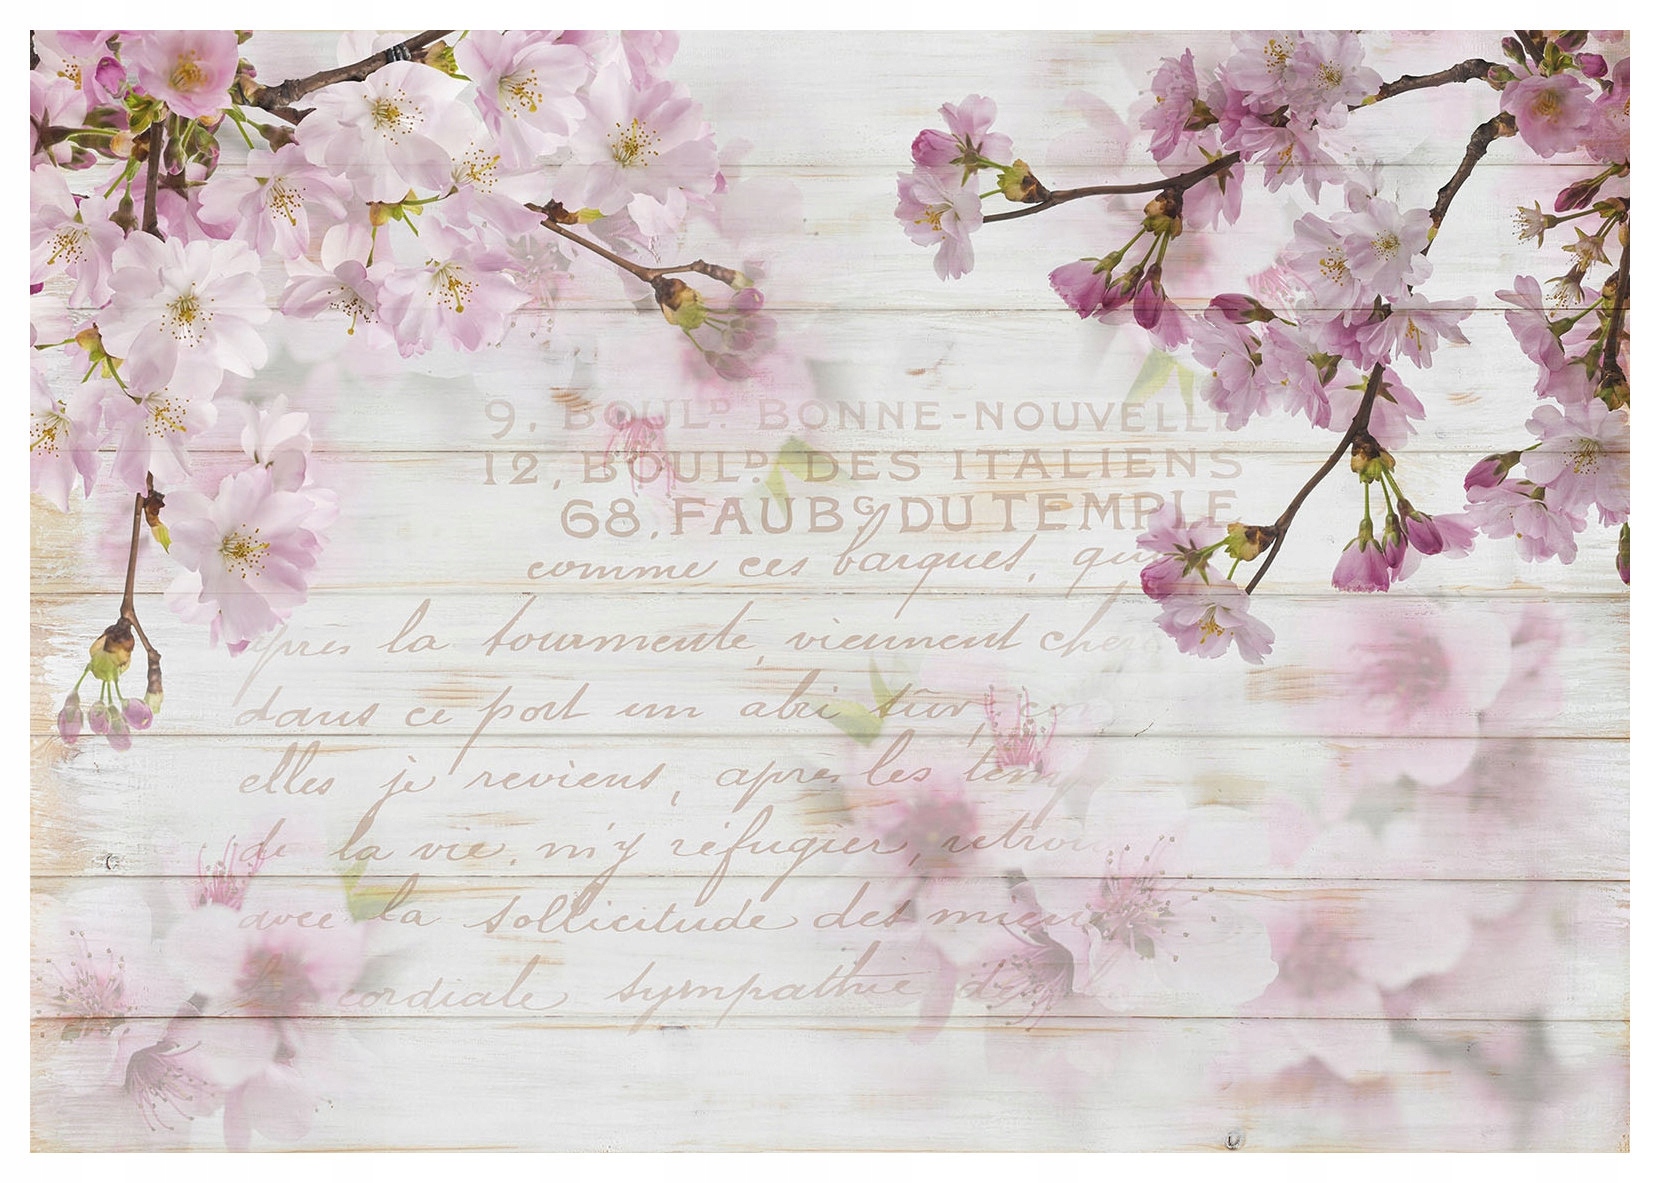 9, BOULD. BONNE-NOUVELLE
12, BOULD. DES ITALIENS
68, FAUBG. DU TEMPLE
comme ces barques, qui
après la tourmente, viennent cher
dans ce port un abri sûr, com
elles je reviens, après les temp
de la vie, m'y réfugier, retrou
avec la sollicitude des miens
La cordiale sympathie de